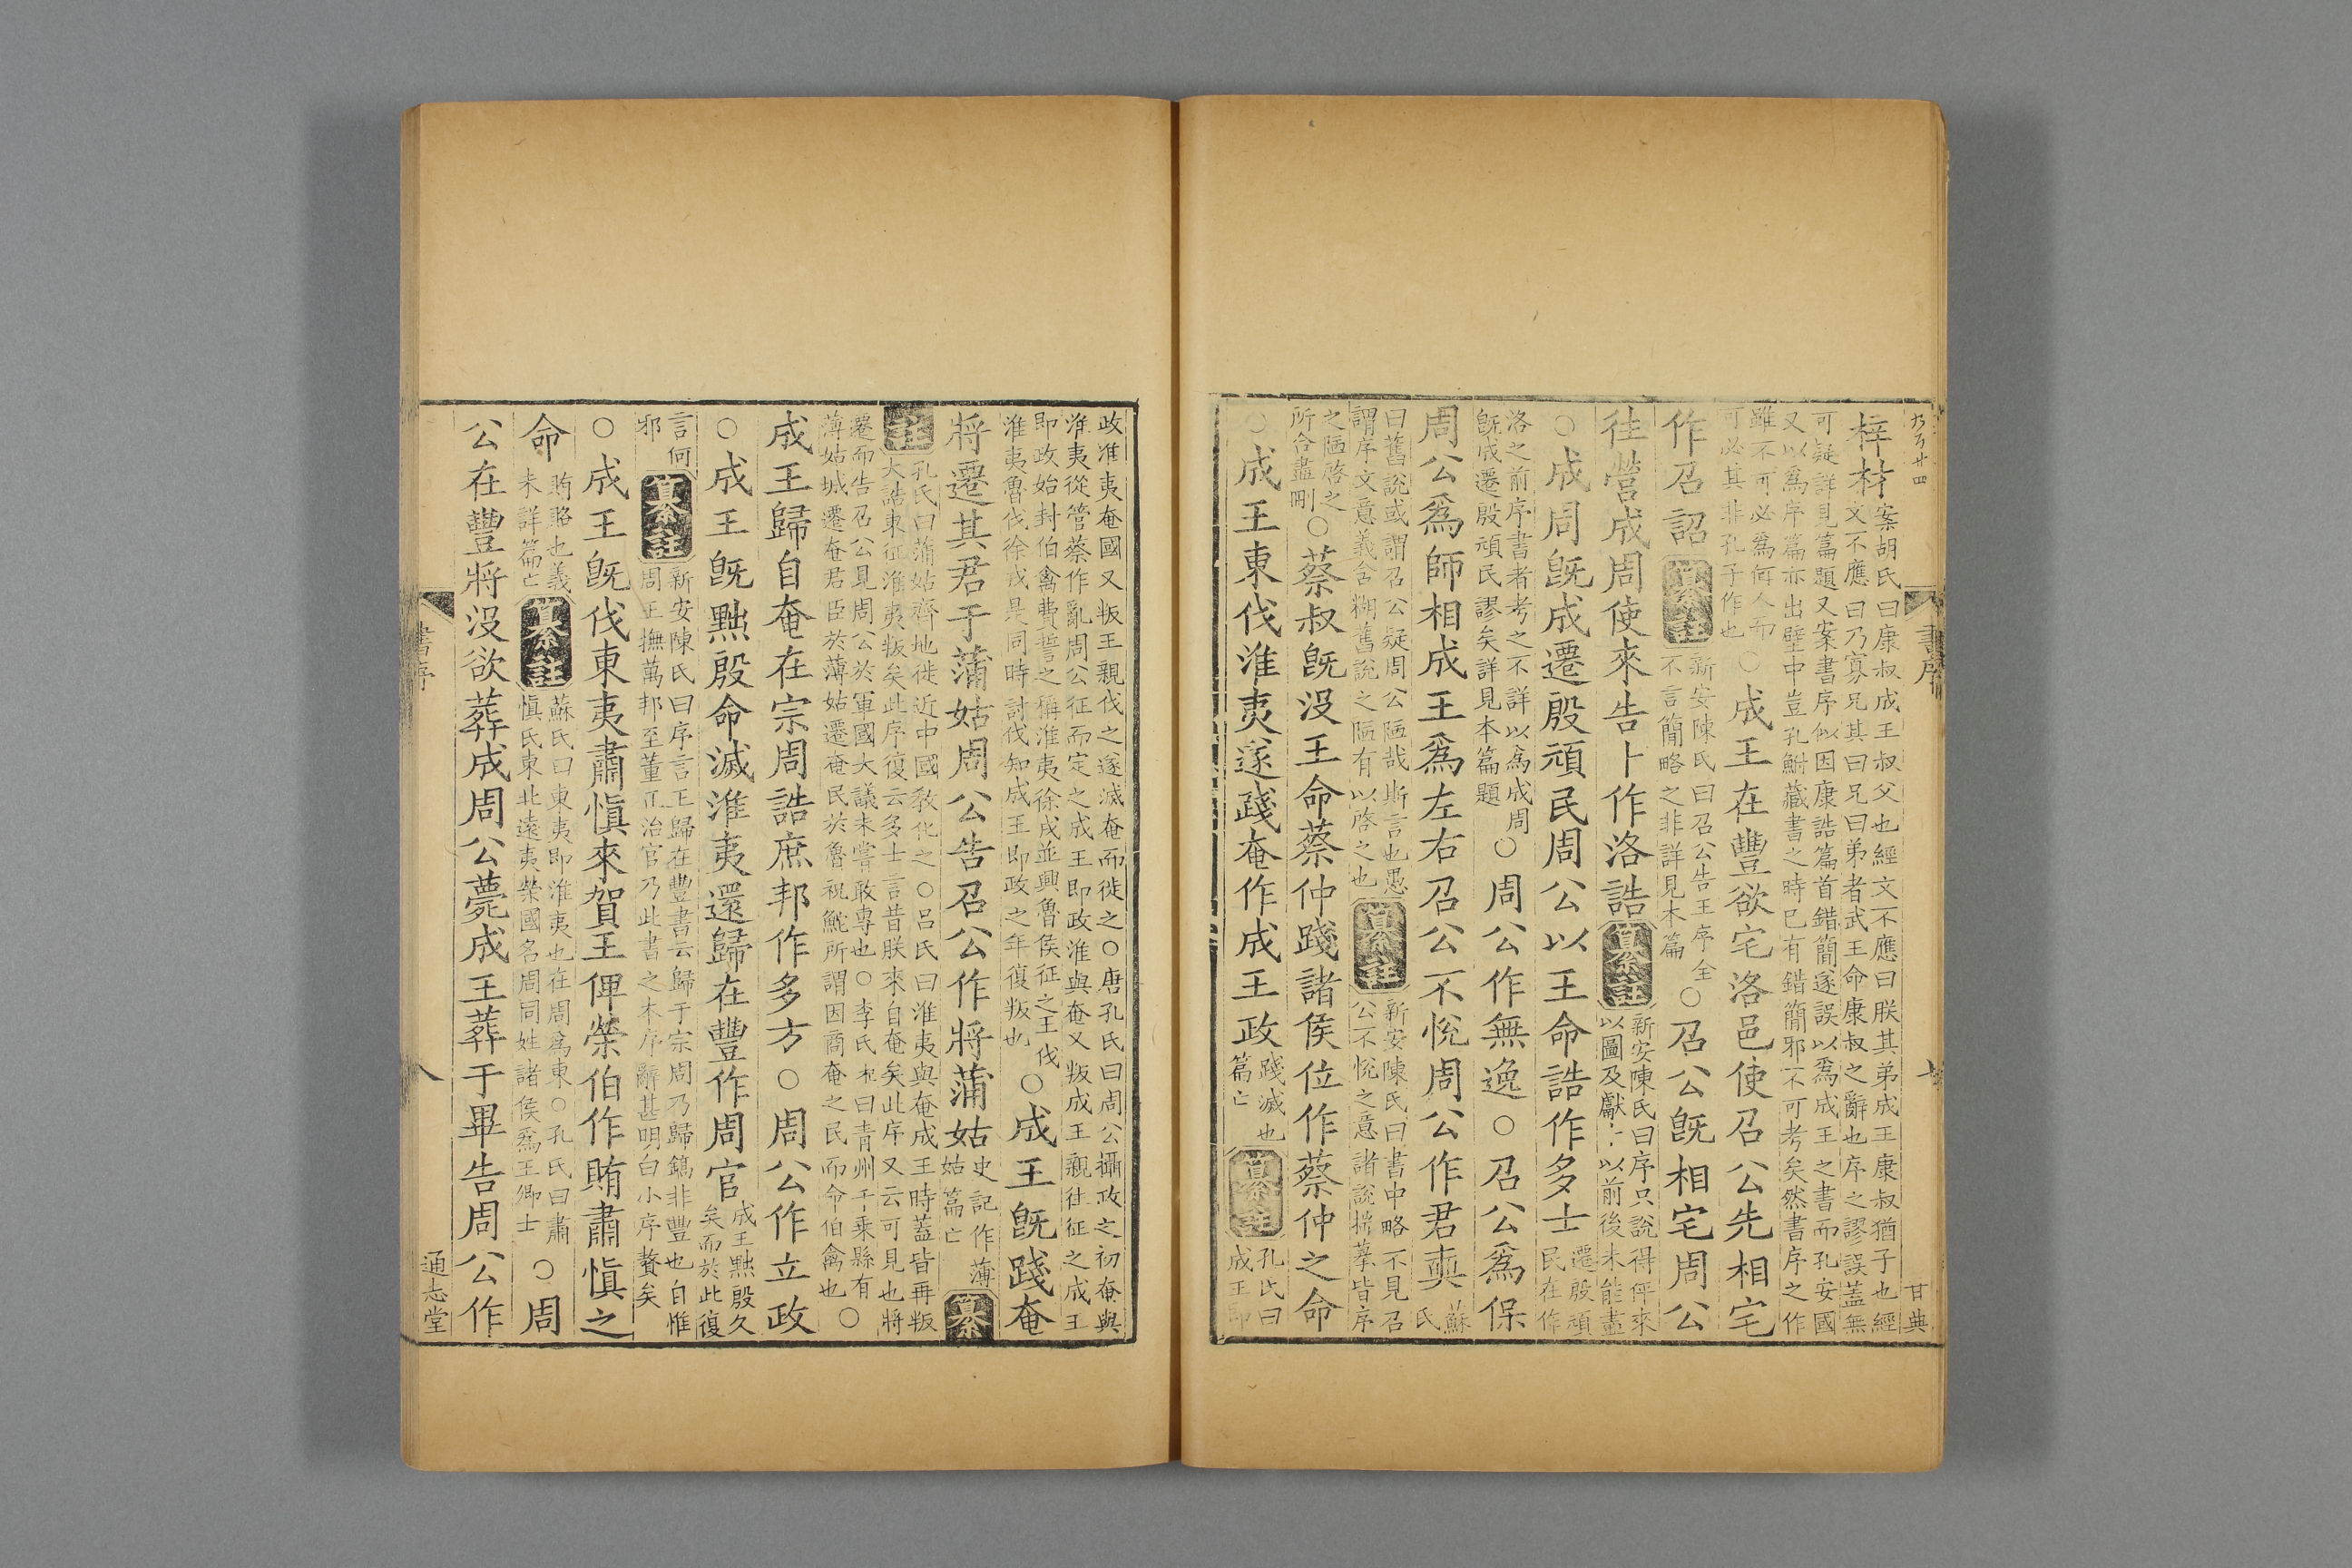 書序 七 甘典
梓材案胡氏曰康叔成王叔父也經文不應曰朕其弟成王康叔猶子也經
文不應曰乃寡兄其曰兄曰弟者武王命康叔之辭也序之謬誤蓋無
可疑詳見篇題又案書序似因康誥篇首錯簡遂誤以爲成王之書而孔安國
又以爲序篇亦出壁中豈孔鮒藏書之時已有錯簡邪不可考矣然書序之作
雖不可必爲何人而
可必其非孔子作也○成王在豐欲宅洛邑使召公先相宅
作召詔 纂註 新安陳氏曰召公告王序全
不言簡略之非詳見本篇○召公旣相宅周公
往營成周使來告卜作洛誥 纂註 新安陳氏曰序只說得伻來
以圖及獻卜以前後未能盡
○成周旣成遷殷頑民周公以王命誥作多士遷殷頑
民在作
洛之前序書者考之不詳以爲成周
旣成遷殷頑民謬矣詳見本篇題○周公作無逸○召公爲保
周公爲師相成王爲左右召公不悅周公作君奭蘇
氏
曰舊說或謂召公疑周公陋哉斯言也愚
謂序文意義含糊舊說之陋有以啓之也 纂註 新安陳氏曰書中略不見召
公不悅之意諸說揣摹皆序
之陋啓之
所合盡刪○蔡叔旣没王命蔡仲踐諸侯位作蔡仲之命
○成王東伐淮夷遂踐奄作成王政踐滅也
篇亡 纂註 孔氏曰
成王即
政淮夷奄國又叛王親伐之遂滅奄而徙之○唐孔氏曰周公攝政之初奄與
淮夷從管蔡作亂周公征而定之成王即政淮與奄又叛成王親往征之成王
即政始封伯禽費誓之稱淮夷徐戎並興魯侯征之王伐
淮夷魯伐徐戎是同時討伐知成王即政之年復叛也○成王旣踐奄
將遷其君于蒲姑周公告召公作將蒲姑史記作薄
姑篇亡 纂
註 孔氏曰蒲姑齊地徙近中國教化之○呂氏曰淮夷與奄成王時蓋皆再叛
大誥東征淮夷叛矣此序復云多士言昔朕來自奄矣此序又云可見也將
遷而告召公見周公於軍國大議未嘗敢專也○李氏杞曰青州千乘縣有
薄姑城遷奄君臣於薄姑遷奄民於魯祝鮀所謂因商奄之民而命伯禽也○
成王歸自奄在宗周誥庶邦作多方○周公作立政
○成王旣黜殷命滅淮夷還歸在豐作周官成王黜殷久
矣而於此復
言何
邪 纂註 新安陳氏曰序言王歸在豐書云歸于宗周乃歸鎬非豐也自惟
周王撫萬邦至董正治官乃此書之本序辭甚明白小序贅矣
○成王旣伐東夷肅愼來賀王俾榮伯作賄肅愼之
命賄賂也義
未詳篇亡 纂註 蘇氏曰東夷即淮夷也在周爲東○孔氏曰肅
愼氏東北遠夷榮國名周同姓諸侯爲王卿士○周
公在豐將没欲葬成周公薨成王葬于畢告周公作
書序 八 通志堂